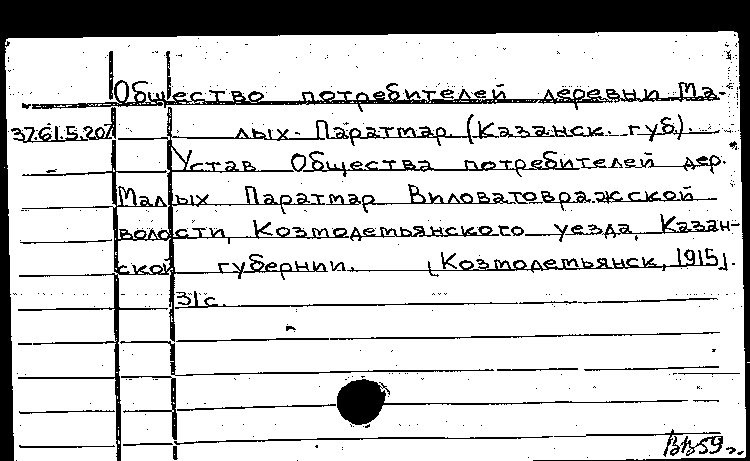 Общество потребителей деревни Ма-
37.61.5.207 лых- Паратмар. (Казанск. губ).
Устав Общества потребителей дер.
Малых Паратмар Виловатовражской
волости, Козмодемьянского уезда, Казан-
ской губернии. [Козмодемьянск, 1915].
31с.
ВВ59